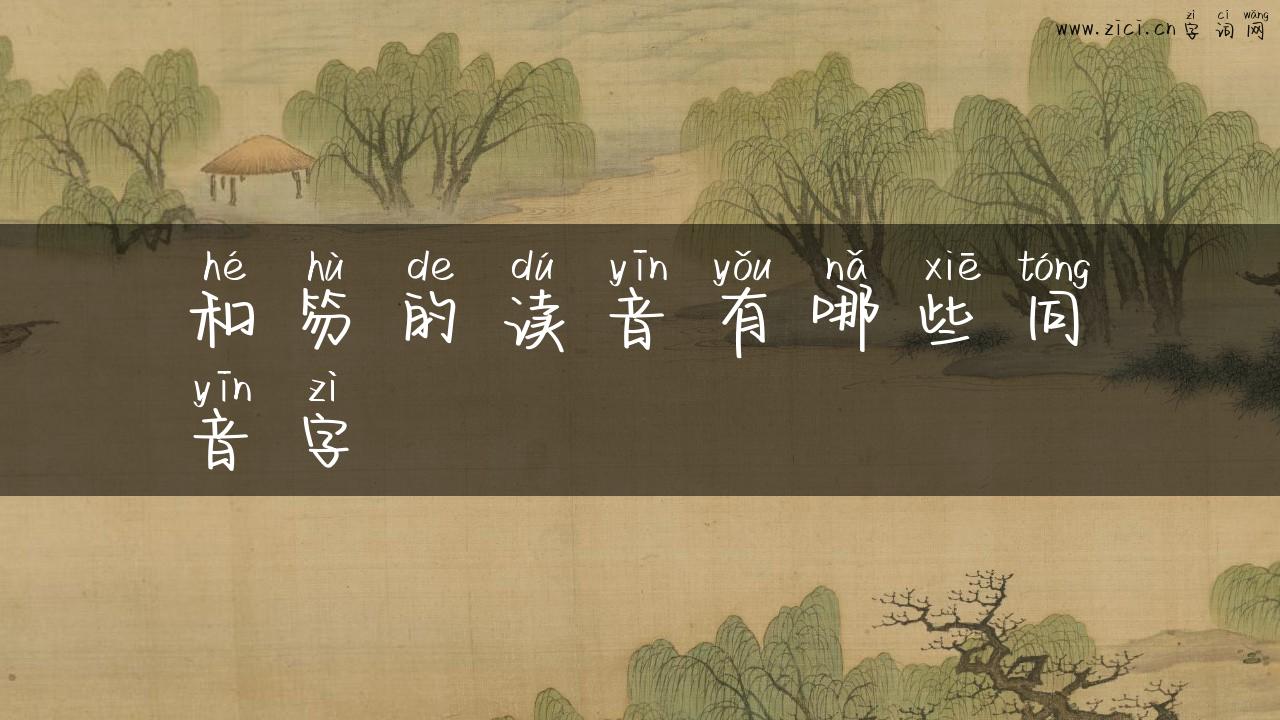 zì cí wǎng
www.zici.cn 字 词 网
hé hù de dú yīn yǒu nǎ xiē tóng
和 笏 的 读 音 有 哪 些 同
yīn zì
音 字